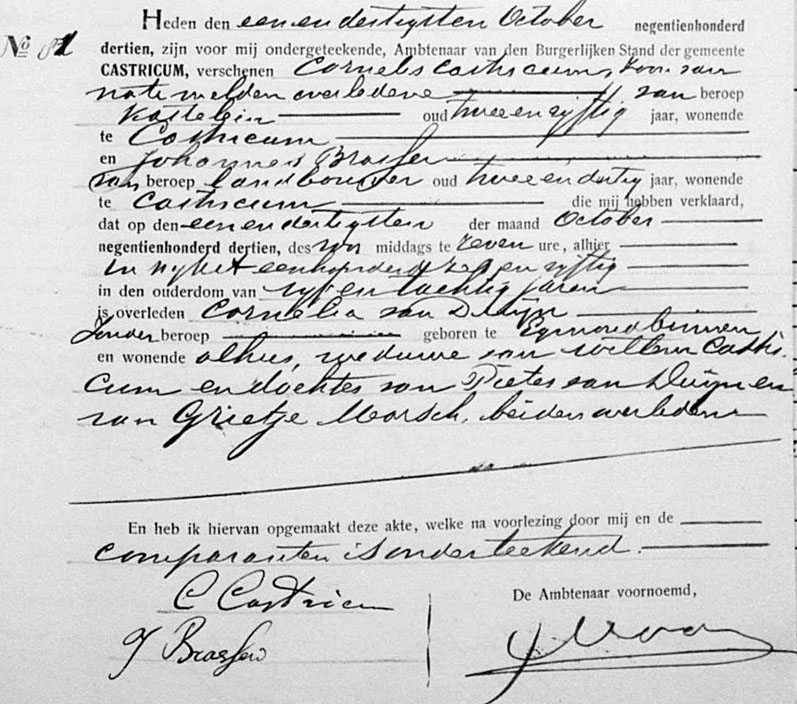 Heden den een en dertigsten October negentienhonderd
No 81 dertien, zijn voor mij ondergeteekende, Ambtenaar van den Burgerlijken Stand der gemeente
CASTRICUM, verschenen Cornelis Castricum, zoon van
na te melden overledene van beroep
Kastelein oud twee en vijftig jaar, wonende
te Castricum
en Johannes Brasser
van beroep landbouwer oud twee en dertig jaar, wonende
te Castricum die mij hebben verklaard,
dat op den een en dertigsten der maand October
negentienhonderd dertien, des voor middags te zeven ure, alhier
in wijk eenhonderd en vijftig
in den ouderdom van vijf en tachtig jaren
is overleden Cornelia van Duijn
Zonder beroep geboren te Egmondbinnen
en wonende alhier, weduwe van Willem Castri-
cum en dochter van Pieter van Duijn en
van Grietje Morsch, beiden overleden
En heb ik hiervan opgemaakt deze akte, welke na voorlezing door mij en de
comparanten is onderteekend.
C Castricum
De Ambtenaar voornoemd,
J Brasser